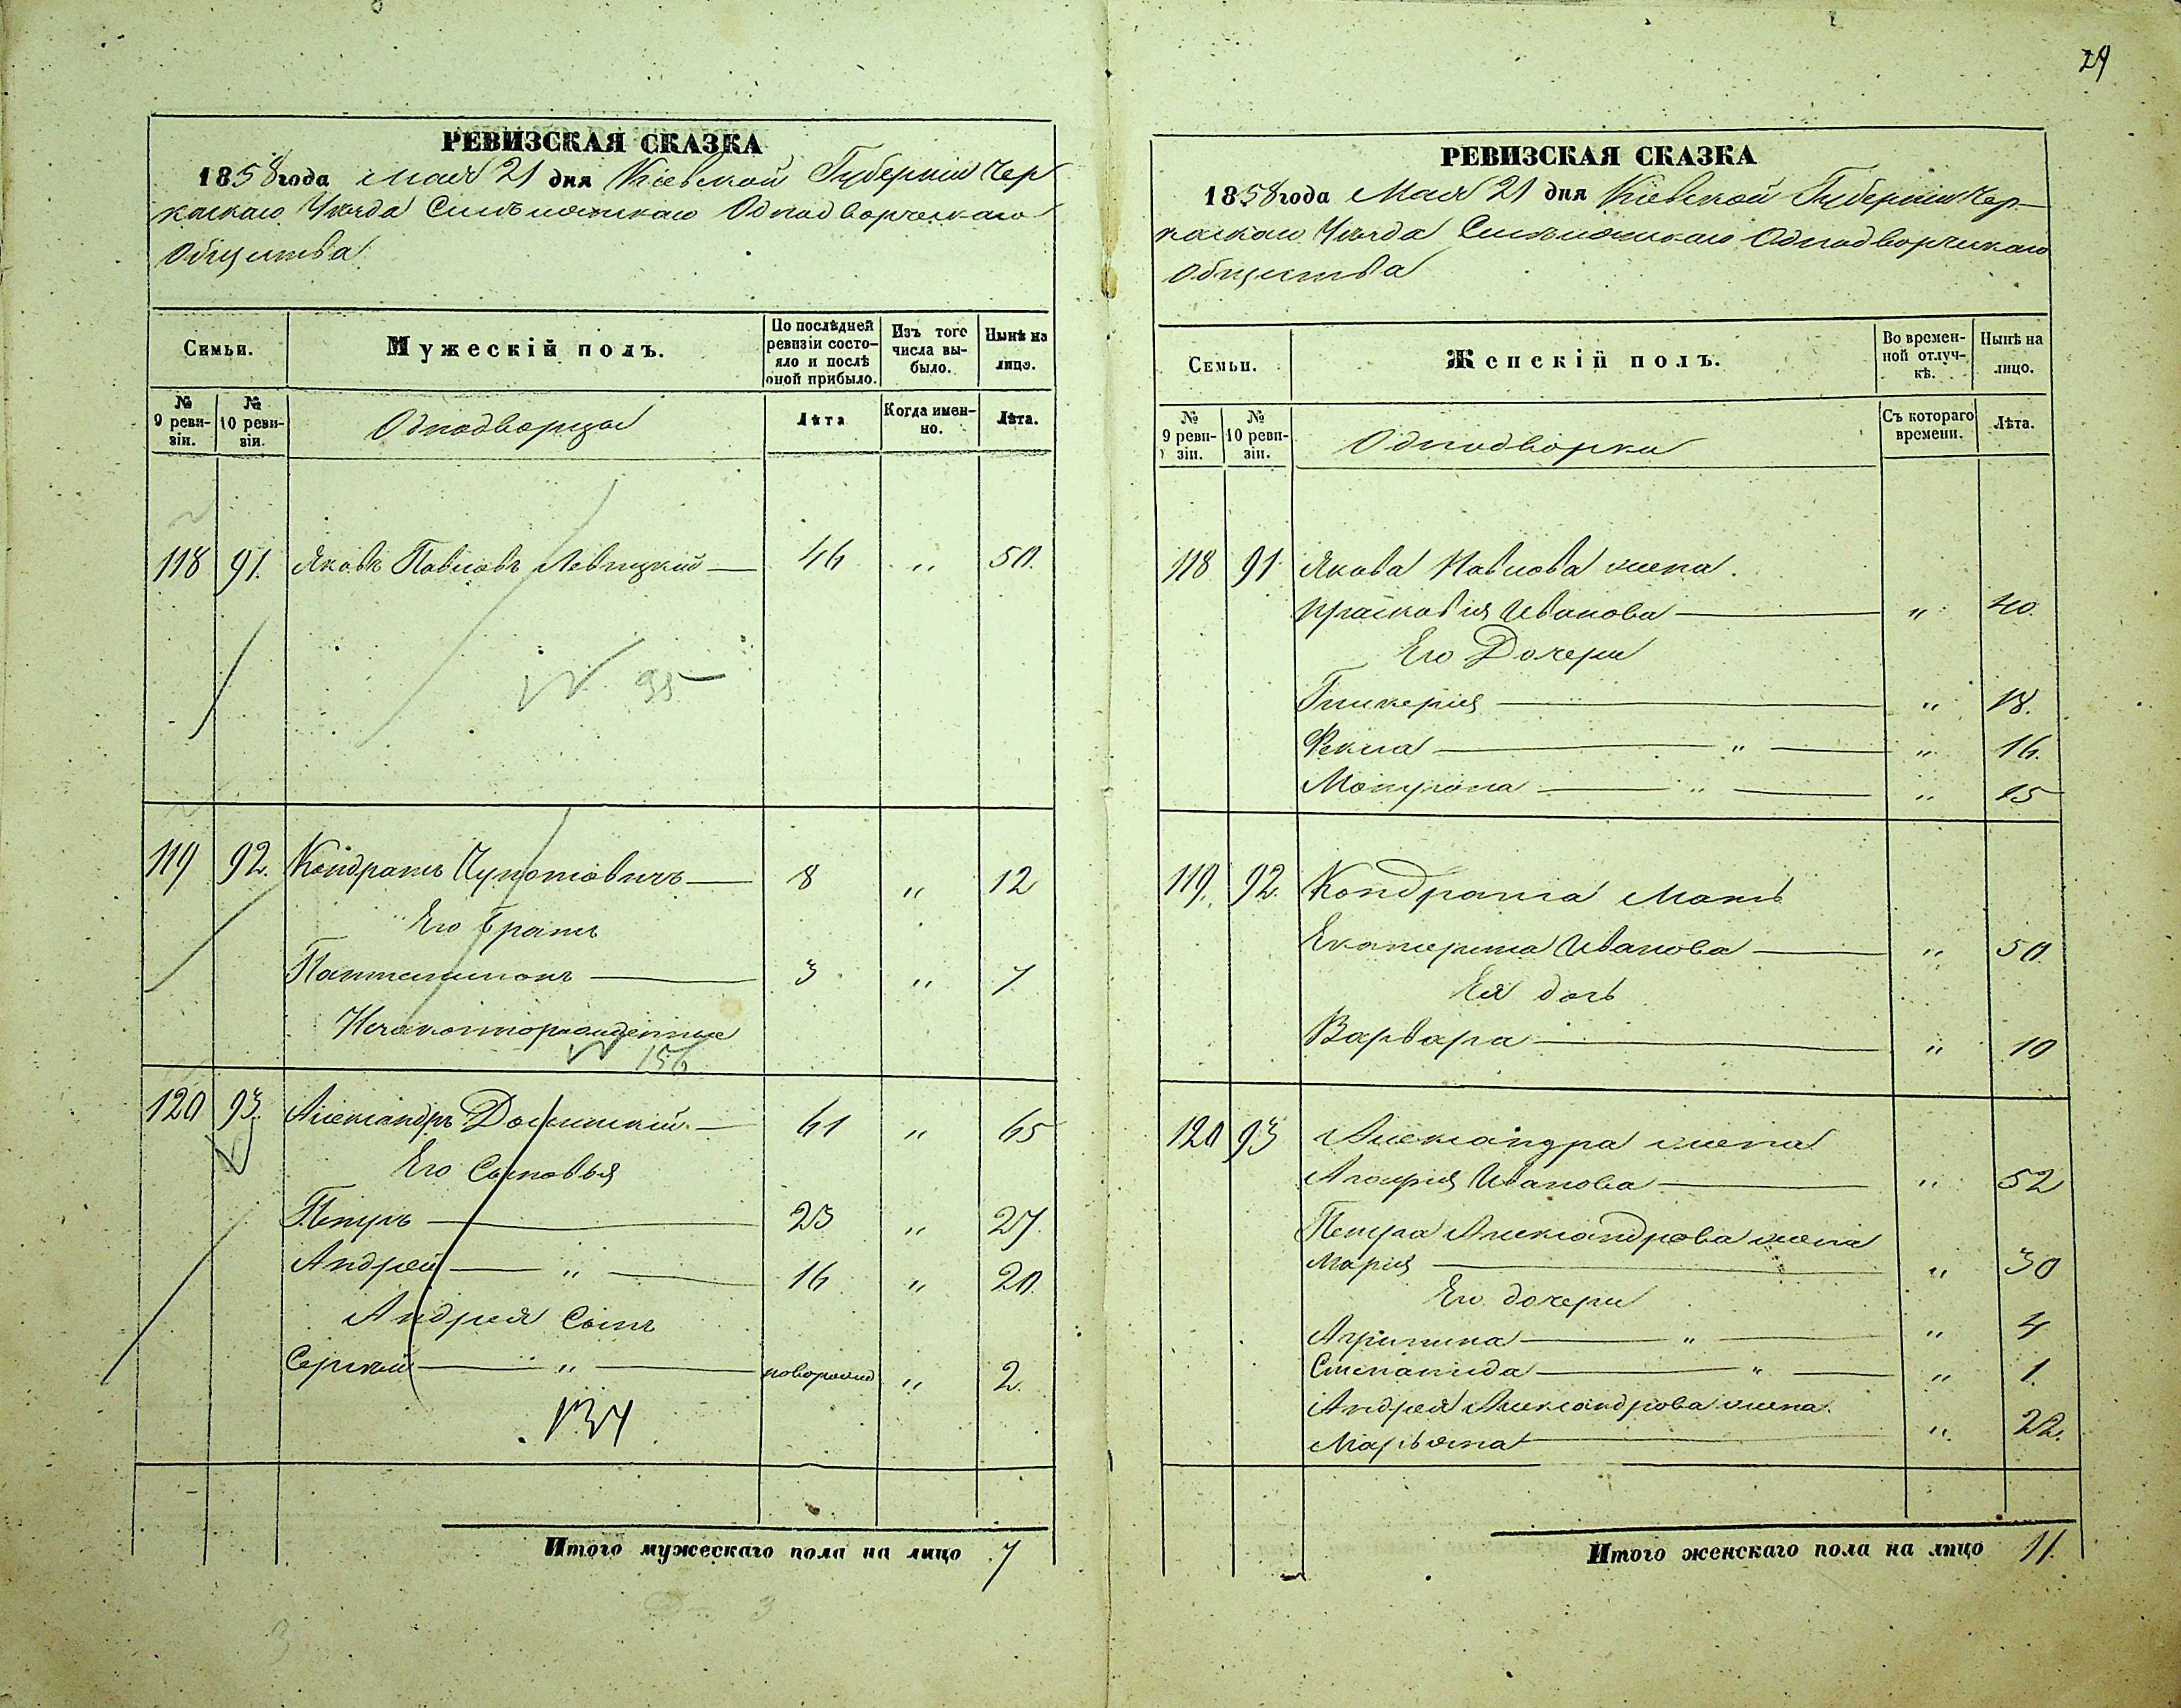 29
РЕВИЗСКАЯ СКАЗКА
1858 года Мая 21 дня Кіевской Губерніи Чер
каскаго Уѣзда Однодворческаго
Общества
Семьи. Мужескій полъ. По послѣдней ревизіи состояло и послѣ оной прибыло. Изъ того числа выбыло. Нынѣ на лицо.
№ 9 ревизіи. № 10 ревизіи. Однодворцы Лѣта Когда именно. Лѣта.
118 91. Яковъ Павловъ Левицкій 46 " 50.
95
119 92. Кондратъ 8 " 12
Его братъ
Пантелимонъ 3 " 7
Незаконнорожденные
156
120 93. Александръ 61 " 65
Его Сыновья
Петръ 23 " 27.
Андрей " 16 " 20.
Андрея Сынъ
Сергѣй " новорожд " 2.
134
Итого мужескаго пола на лицо 7
РЕВИЗСКАЯ СКАЗКА
1858 года Мая 21 дня Кіевской Губерніи Чер
каскаго Уѣзда Однодворческаго
Общества
Семьи. Женскій полъ. Во временной отлучкѣ. Нынѣ на лицо.
№ 9 ревизіи. № 10 ревизіи. Однодворки Съ котораго времени. Лѣта.
118 91 Якова Павлова жена
Прасковія Иванова " 40.
Его Дочери
Гликерія " 18.
Фекла " " 16.
" " 15
119. 92. Кондрата Мать
Екатерина Иванова " 50.
Ея дочь
Варвара " 10
120 93 Александра жена
Иванова " 52
Петра Александрова жена
Марія " 30
Его дочери
Агрипина " " 4
Степанида " " 1.
Андрея Александрова жена
Марьяна " 22.
Итого женскаго пола на лицо 11.